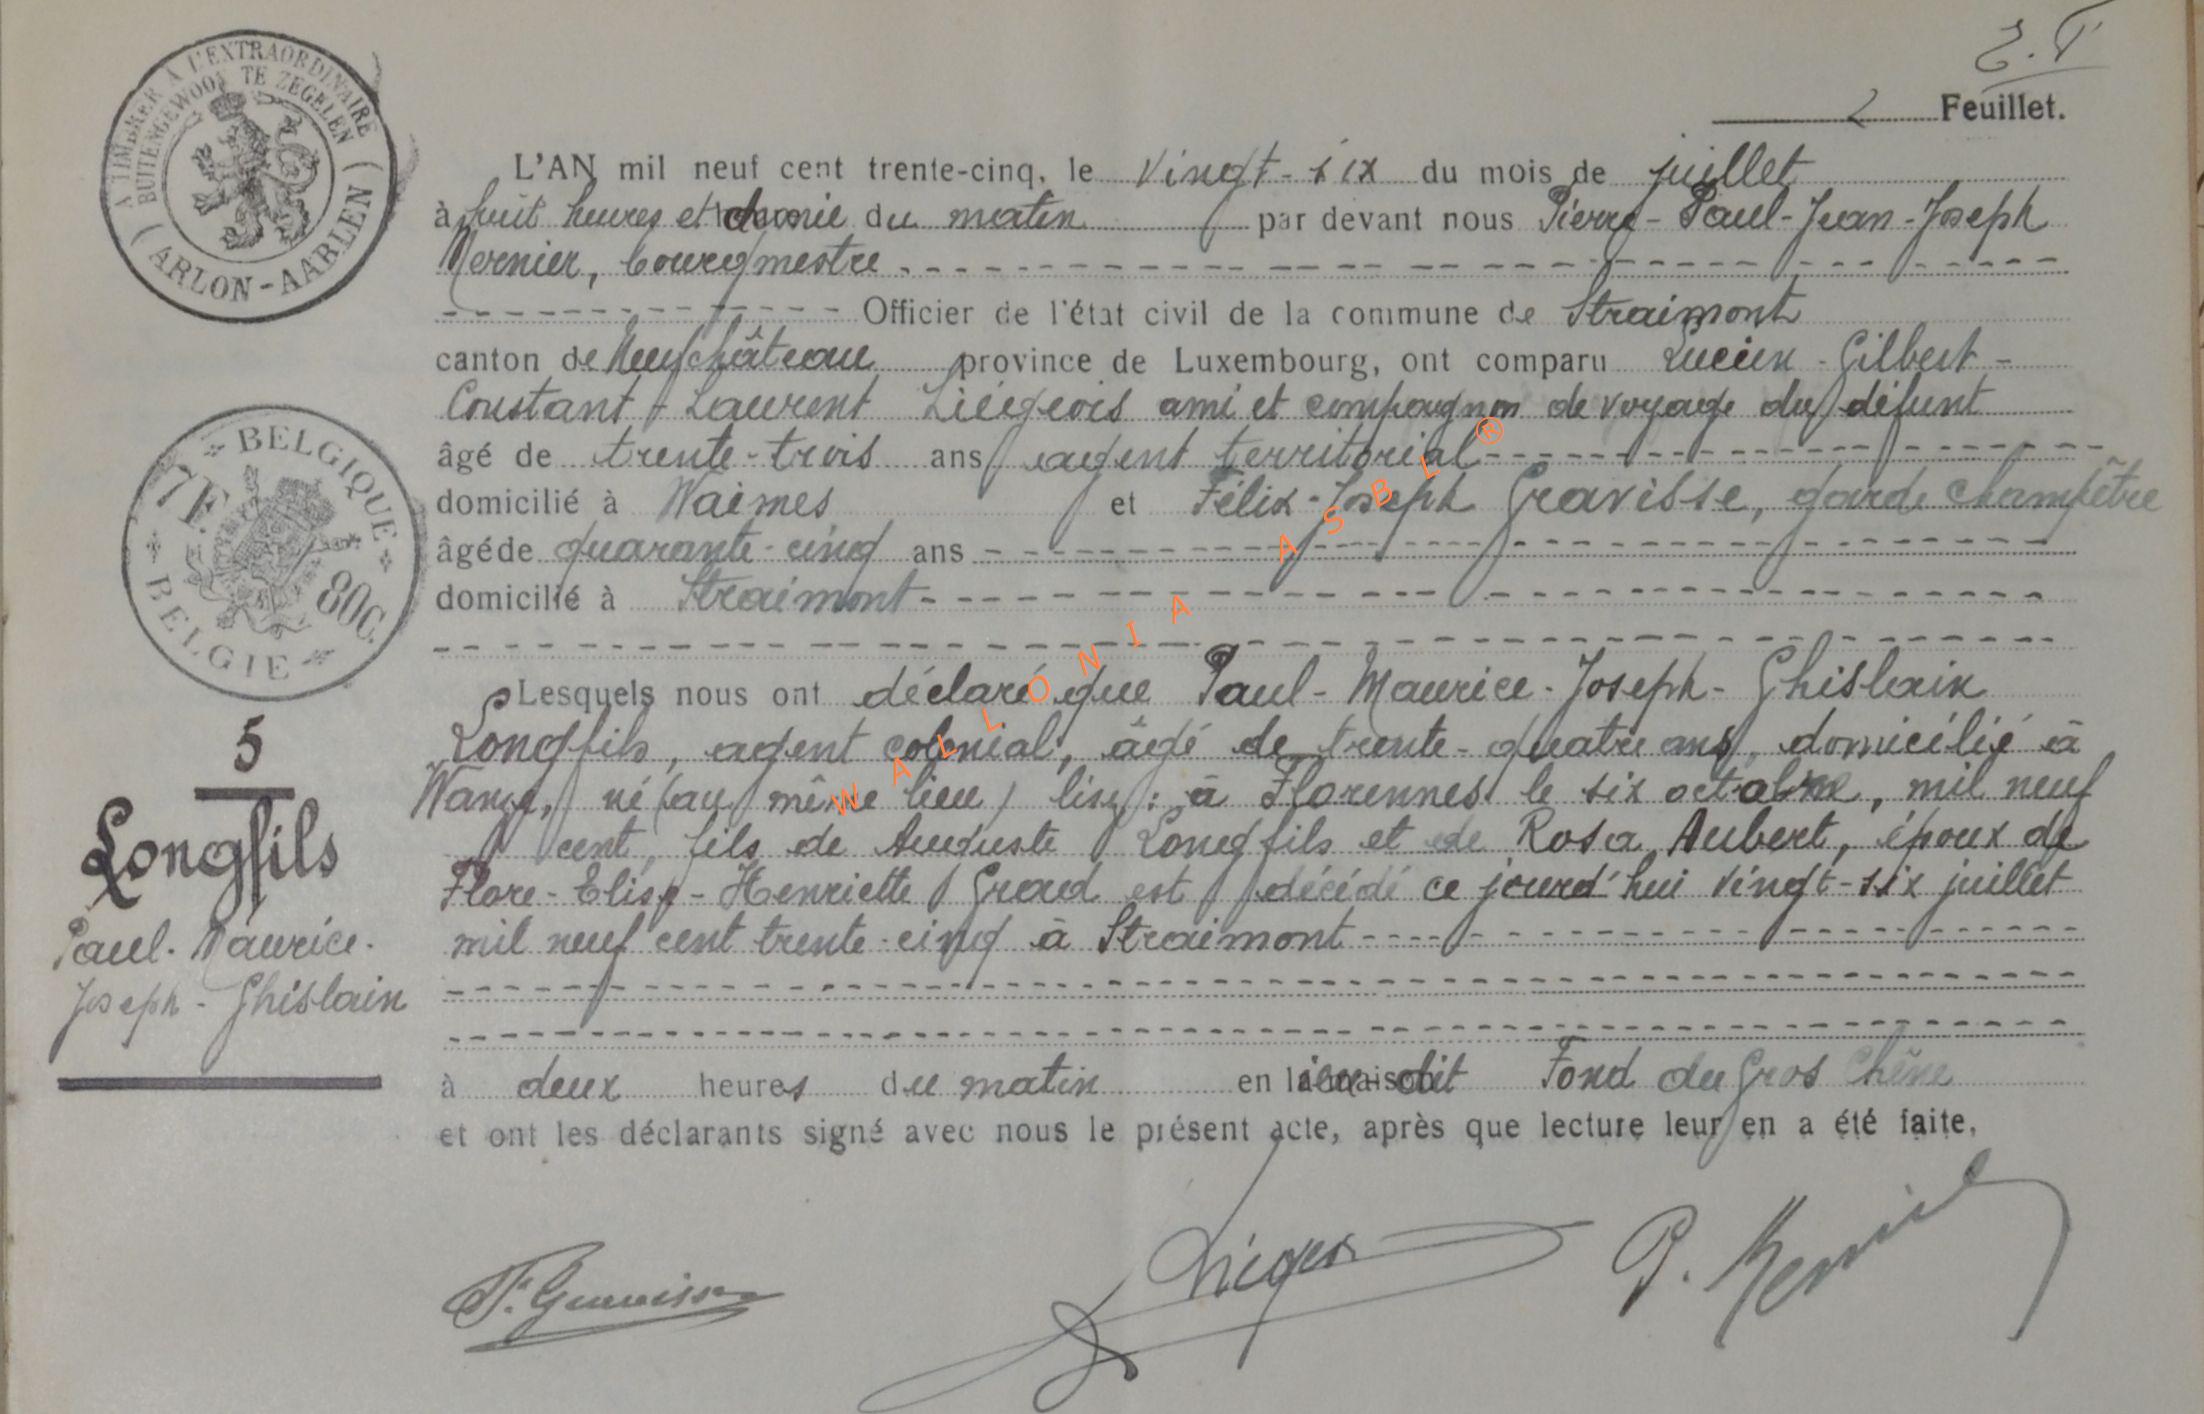 A TIMBRER A L'EXTRAORDINAIRE
BUITENGEWOON TE ZEGELEN
(ARLON-AARLEN)
2 Feuillet.
L'AN mil neuf cent trente-cinq, le vingt-six du mois de juillet
à huit heures et demie du matin par devant nous Pierre-Paul-Jean-Joseph
Mernier, bourgmestre
Officier de l'état civil de la commune de Straimont
canton de Neufchâteau province de Luxembourg, ont comparu Lucien-Gilbert-
Constant-Laurent Liégeois ami et compagnon de voyage du défunt
âgé de trente-trois ans agent territorial
domicilié à Waimes et Félix-Joseph Gravisse, garde champêtre
âgé de quarante-cinq ans
domicilié à Straimont
Lesquels nous ont déclaré que Paul-Maurice-Joseph-Ghislain
Longfils, agent colonial, âgé de trente-quatre ans, domicilié à
né (au même lieu) lisez: à Florennes le six octobre, mil neuf
cent, fils de Auguste Longfils et de Rosa Aubert, époux de
Flore-Elise-Henriette est décédé ce jourd'hui vingt-six juillet
mil neuf cent trente-cinq à Straimont
à deux heures du matin en lieu-dit Fond du Gros Chêne
et ont les déclarants signé avec nous le présent acte, après que lecture leur en a été faite.
BELGIQUE
7F. 80C.
BELGIE
5
Longfils
Paul-Maurice-
Joseph-Ghislain
WALLONIA ASBL ®
F. Gravisse
P. Mernier